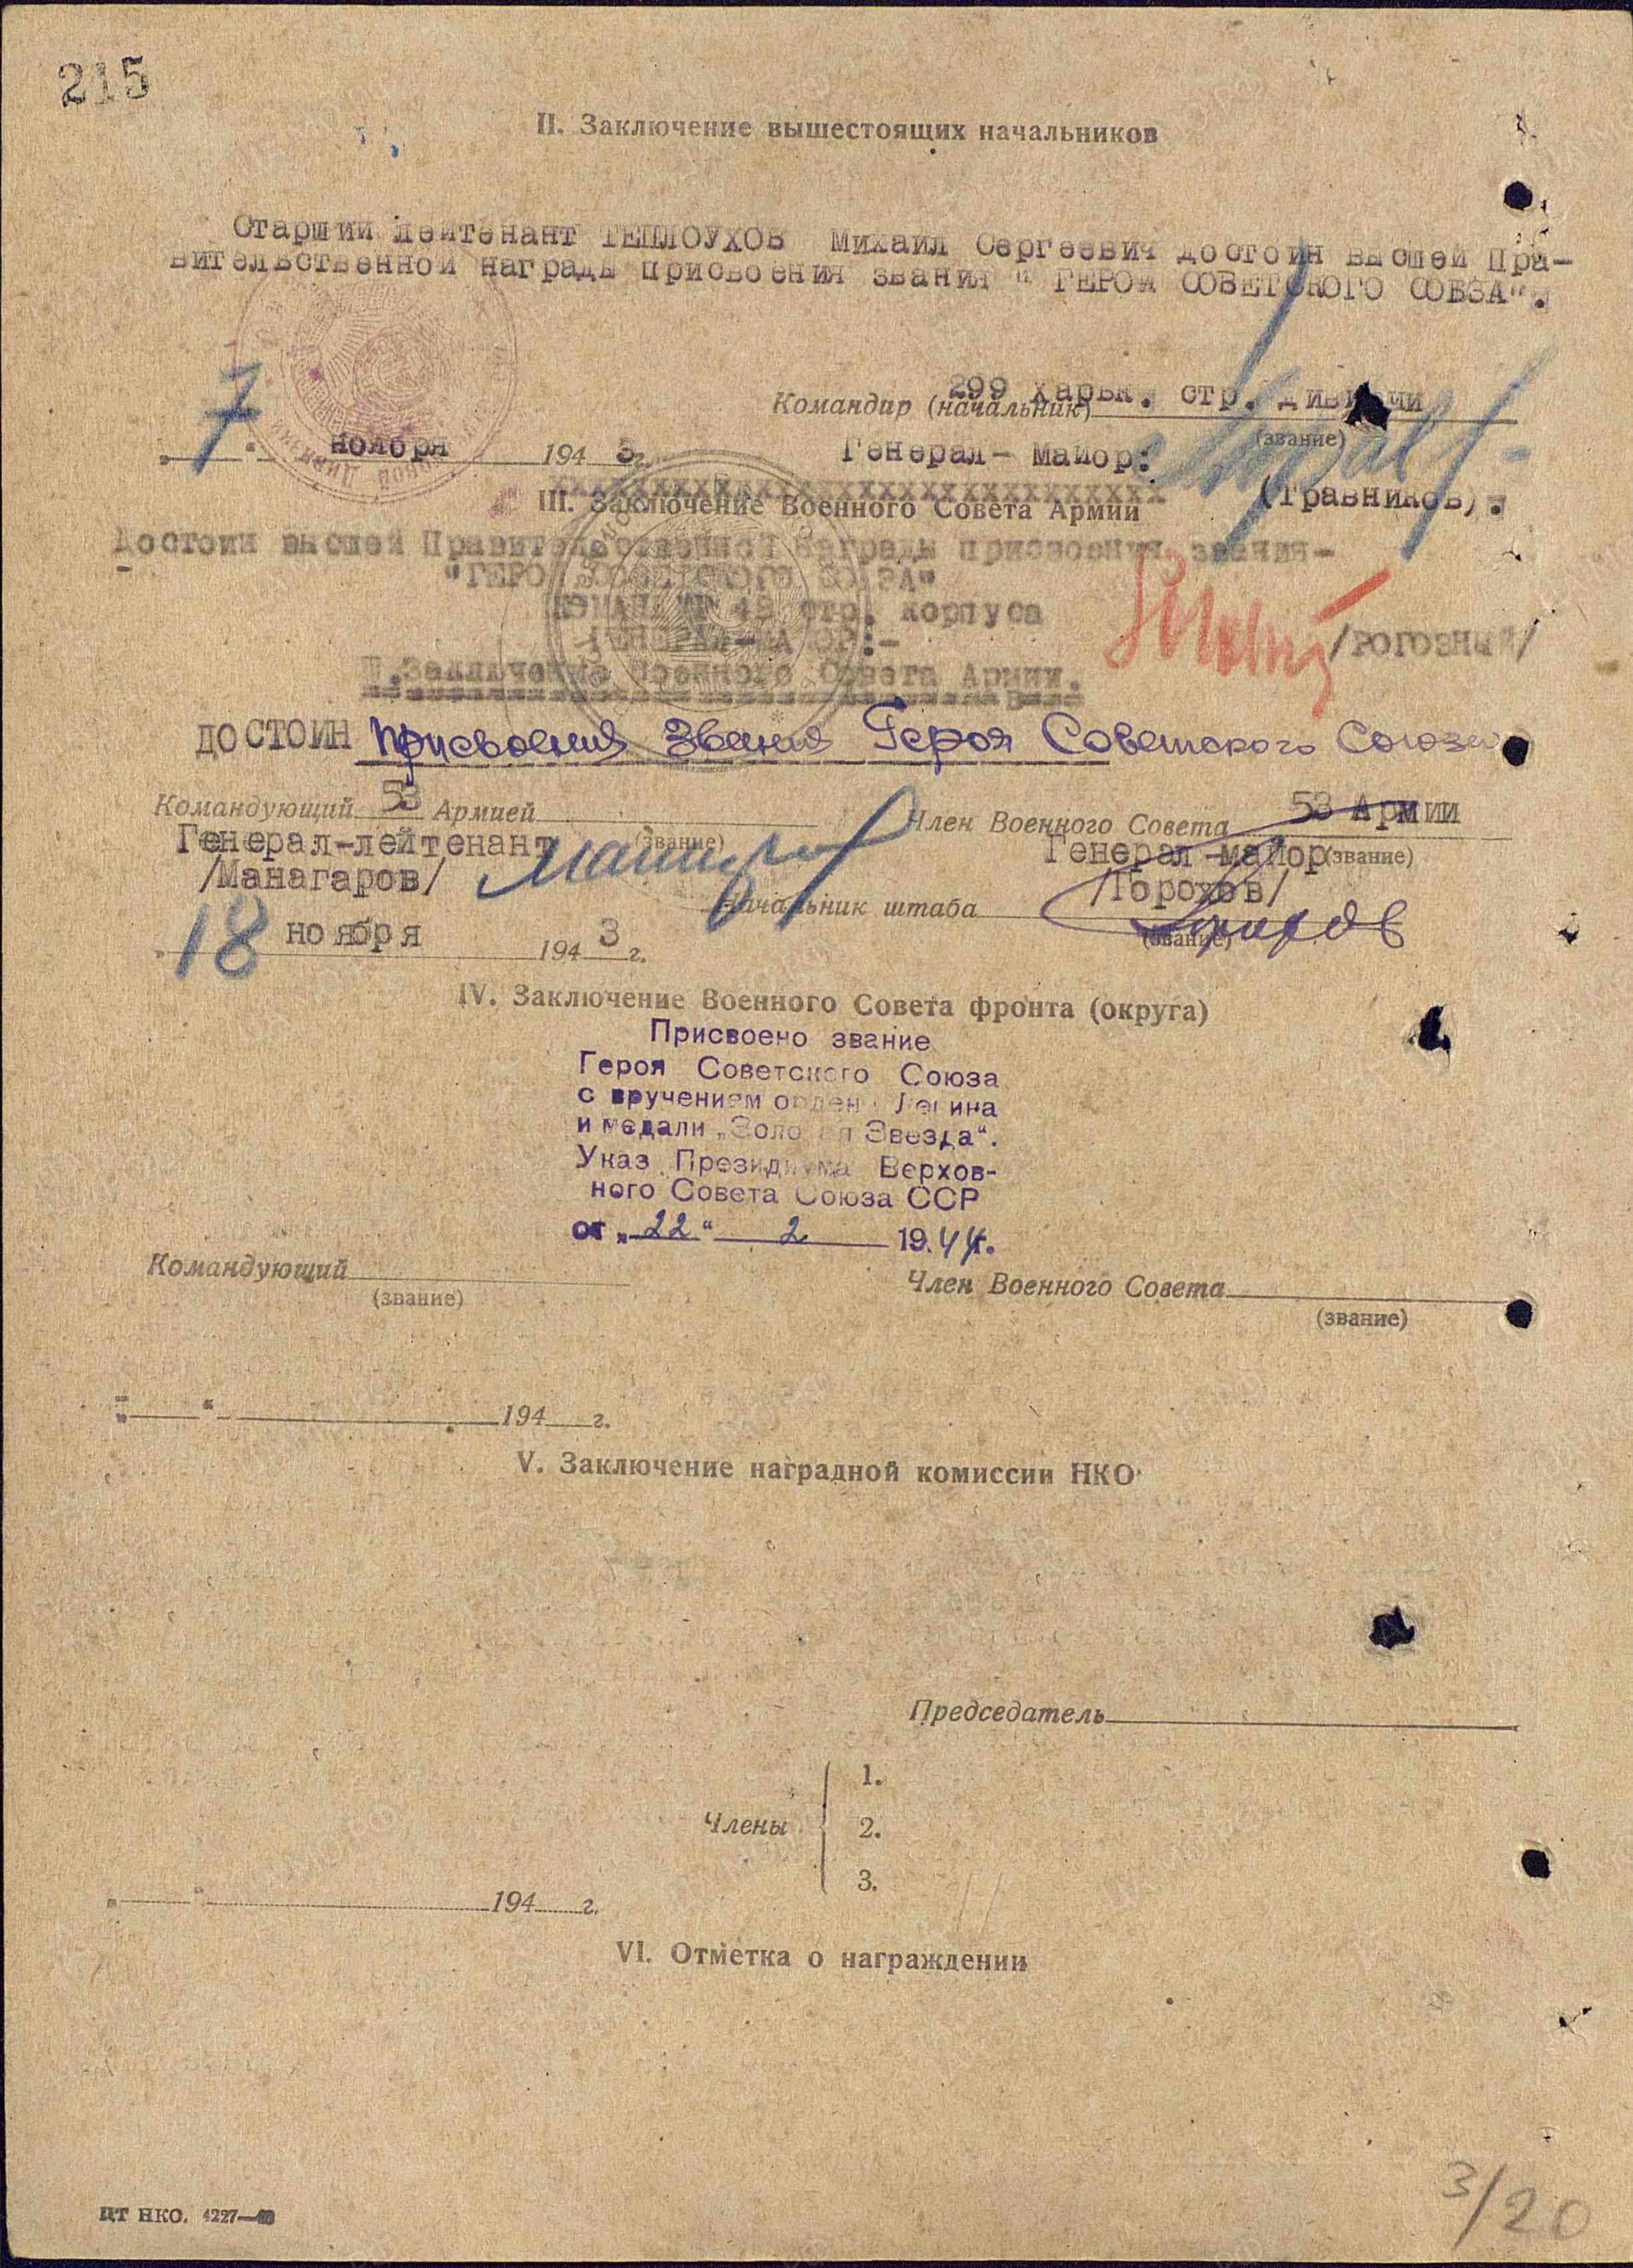 215
II. Заключение вышестоящих начальников
Старший лейтенант ТЕПЛОУХОВ Михаил Сергеевич достоин высшей Пра-
вительственной награды присвоения звания " ГЕРОЯ СОВЕТСКОГО СОЮЗА".
299 харьк. стр. дивизии
Командир (начальник)
(звание)
7 ноября 1943 г.
Генерал- Майор:
(Травников).
III. Заключение Военного Совета Армии
Достоин высшей Правительственной награды присвоения звания-
"ГЕРОЙ СОВЕТСКОГО СОЮЗА"
КОМАНДИР 48 стр. корпуса
ГЕНЕРАЛ-МАЙОР:-
/РОГОЗНЫЙ/
Ш.Заключение Военного Совета Армии.
ДОСТОИН присвоения звания Героя Советского Союза
Командующий 53 Армией
(звание)
Член Военного Совета 53 Армии
Генерал-лейтенант
Генерал-майор (звание)
/Манагаров/
/Горохов/
Начальник штаба
(звание)
18 ноября 1943 г.
IV. Заключение Военного Совета фронта (округа)
Присвоено звание
Героя Советского Союза
с вручением ордена Ленина
и медали „Золотая Звезда".
Указ Президиума Верхов-
ного Совета Союза ССР
от „22" 2 1944г.
Командующий
(звание)
Член Военного Совета
(звание)
„ " 194 г.
V. Заключение наградной комиссии НКО
Председатель
Члены
1.
2.
3.
„ " 194 г.
VI. Отметка о награждении
ЦТ НКО. 4227—
3/20